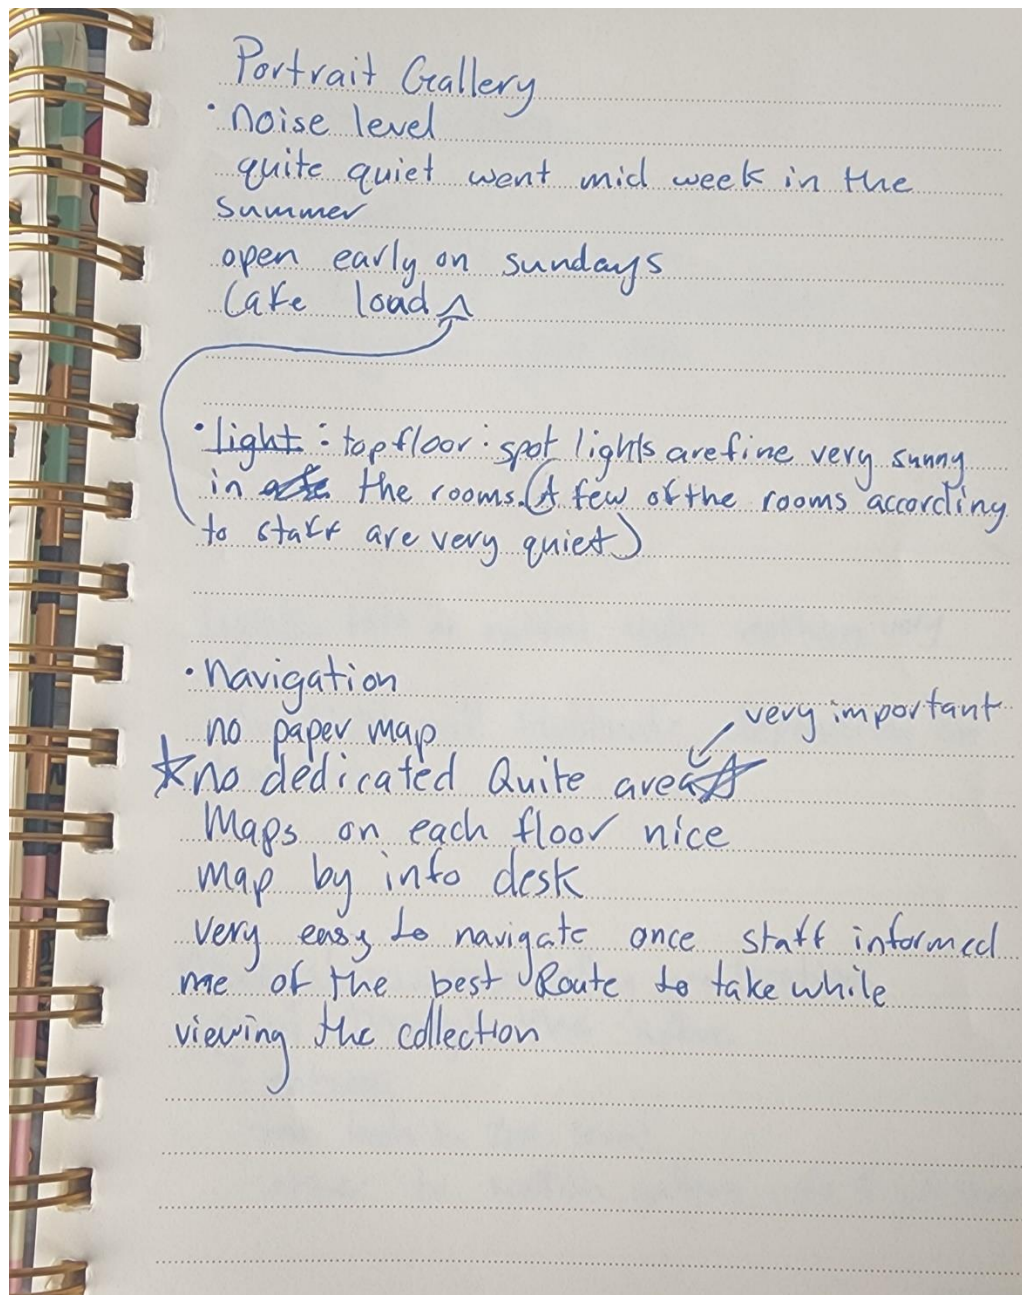 Portrait Gallery
• noise level
quite quiet went mid week in the
summer
open early on sundays
Cafe load ^
• light : top floor : spot lights are fine very sunny
in the rooms. (A few of the rooms according
to staff are very quiet)
• Navigation
no paper map
very important
☆ no dedicated Quite area
Maps on each floor nice
map by info desk
very easy to navigate once staff informed
me of the best Route to take while
viewing the collection